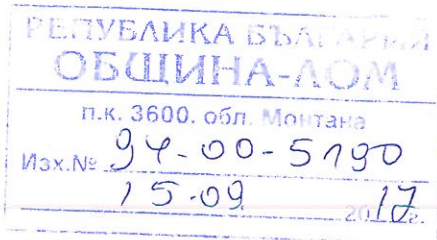 РЕПУБЛИКА БЪЛГАРИЯ
ОБЩИНА-ЛОМ
п.к. 3600. обл. Монтана
Изх.№ 94-00-5190
15-09 2017г.